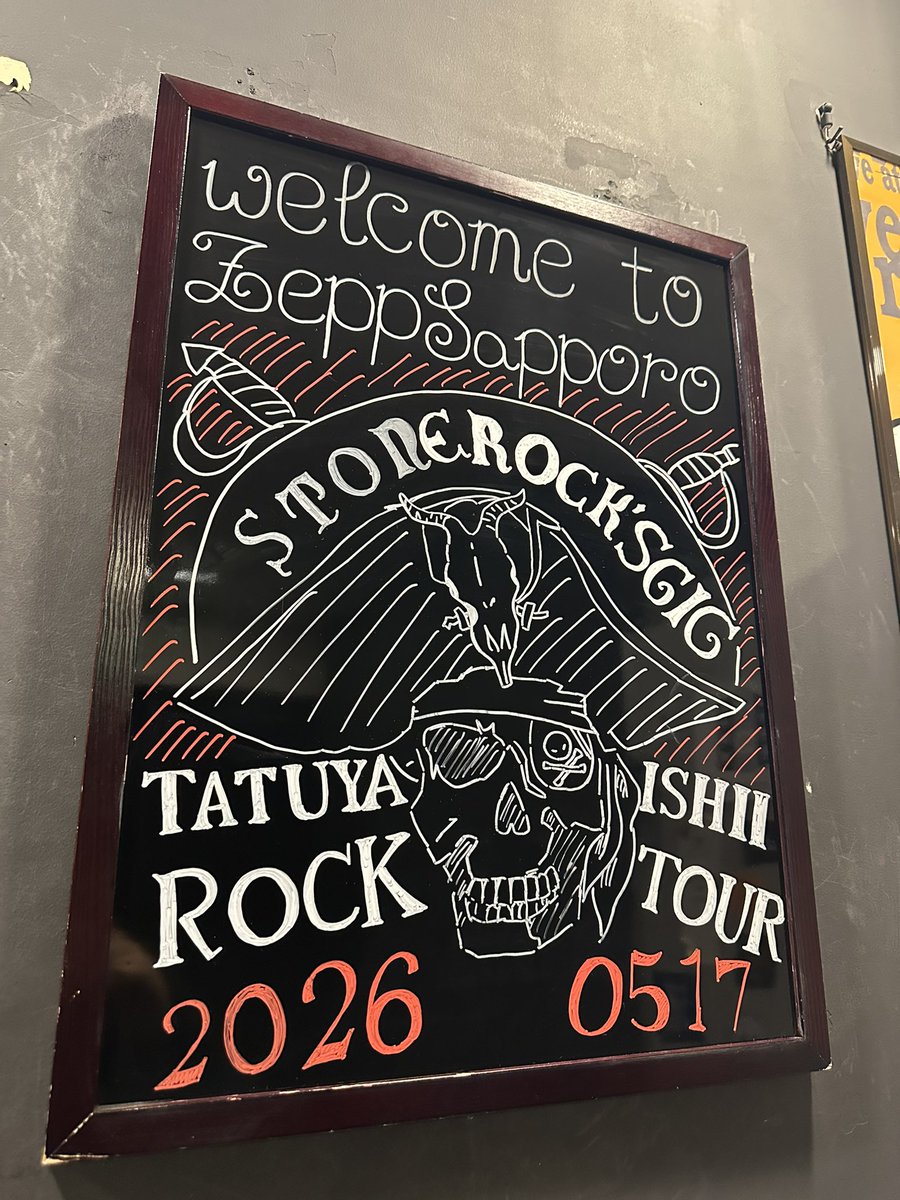 welcome to
ZeppSapporo
STONEROCK'SGIG
TATUYA ISHII
ROCK TOUR
2026 0517